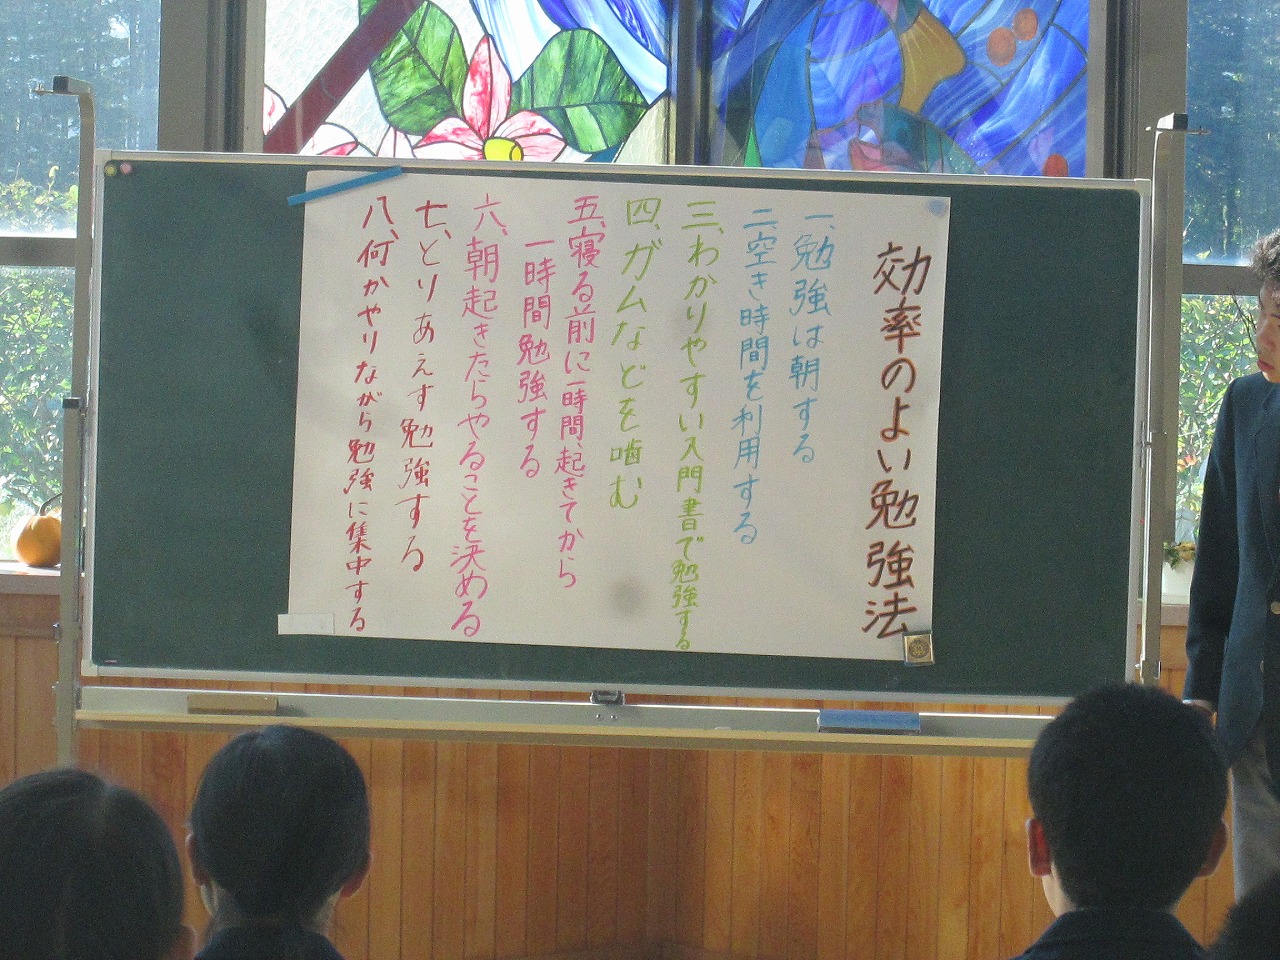 効率のよい勉強法
一、勉強は朝する
二、空き時間を利用する
三、わかりやすい入門書で勉強する
四、ガムなどを噛む
五、寝る前に一時間、起きてから
一時間勉強する
六、朝起きたらやることを決める
七、とりあえす勉強する
八、何かやりながら勉強に集中する